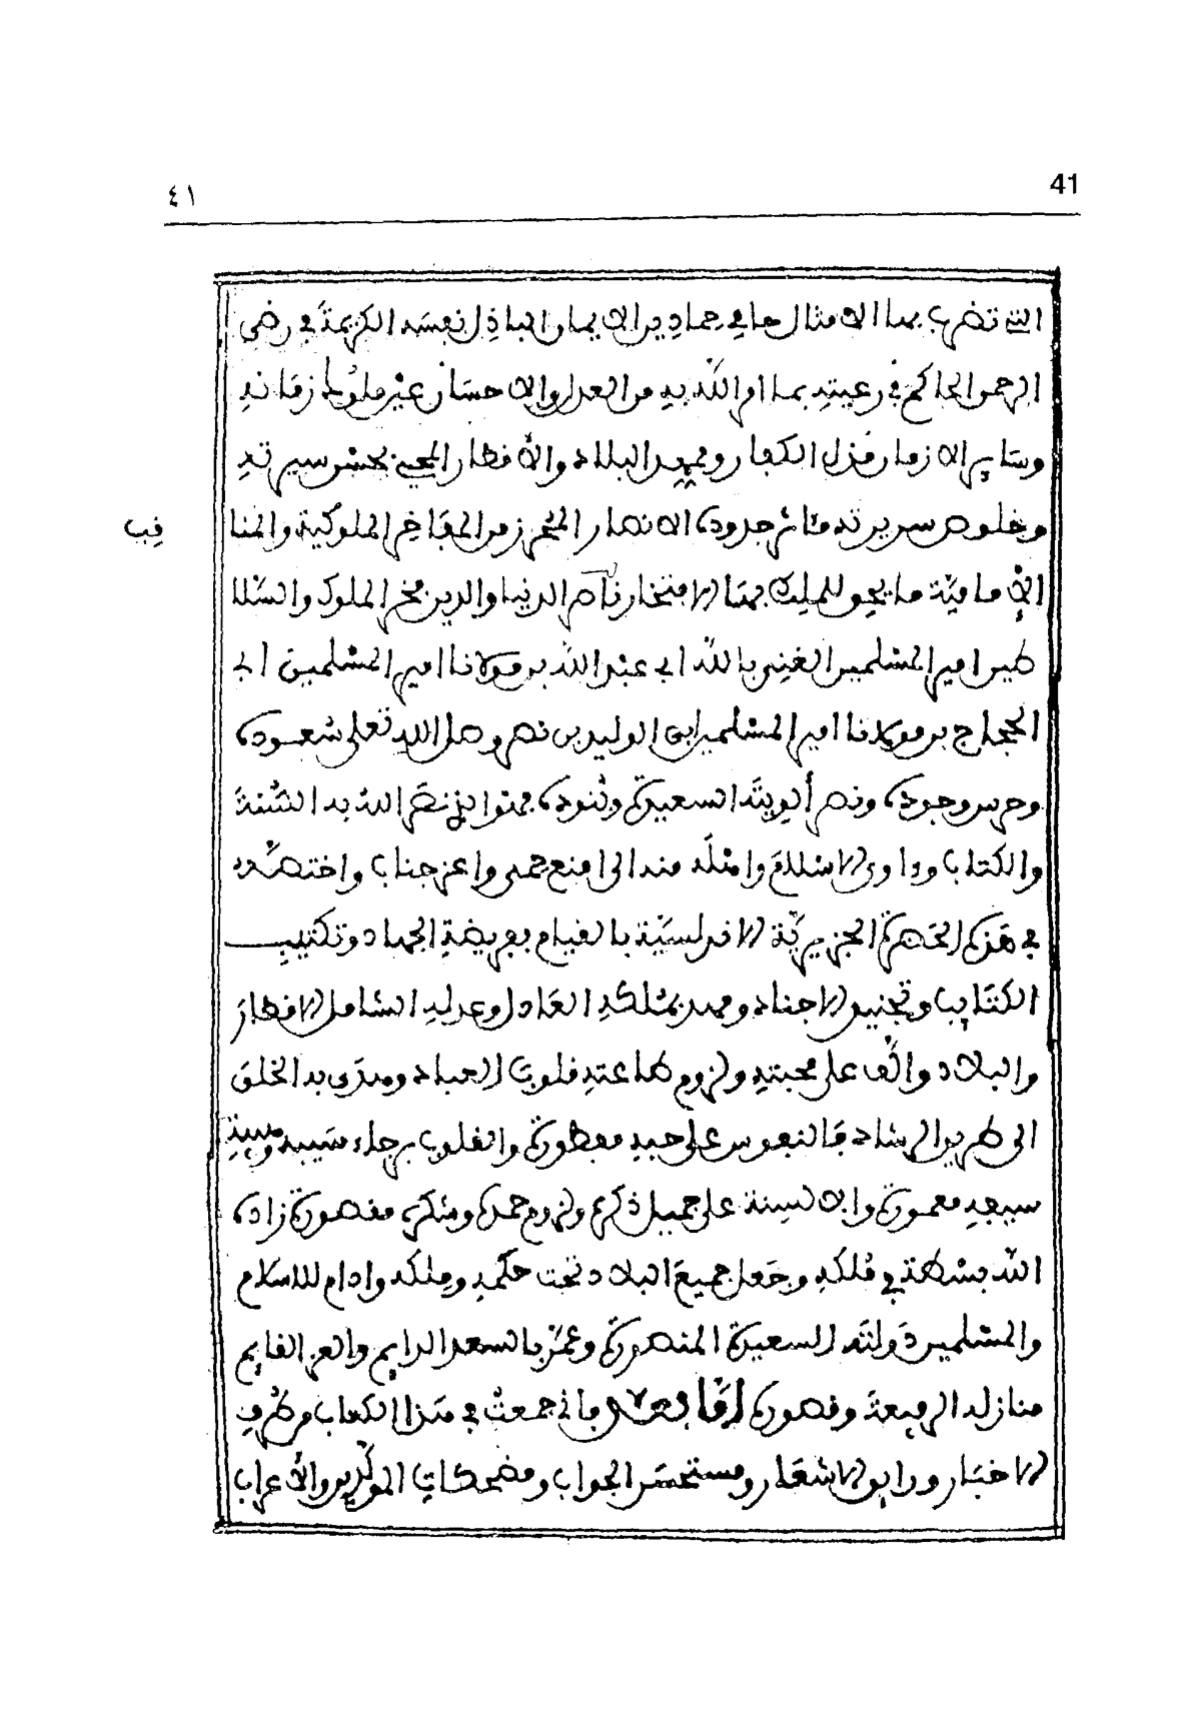 41
٤١
التي تضرب بها الامثال حامي حمى دين الايمان الباذل نفسه الكريمة في رضى
الرحمن الحاكم في رعيته بما امر الله به من العدل والاحسان عين ملوك زمانه
وساير الازمان مذل الكفار وممهد البلاد والاقطار المحيي بحسن سيرته
وخلوص سريرته مئاثر جدوده الانصار المحرز من المفاخر الملوكية والمنا
قب
الإمامية ما يحق للملك بها الافتخار ناصر الدنيا والدين فخر الملوك والسلا
طين امير المسلمين الغني بالله ابي عبد الله بن مولانا امير المسلمين ابي
الحجاج بن مولانا امير المسلمين ابي الوليد بن نصر وصل الله تعلى سعوده
وحرس وجوده ونصر ألويته السعيدة وبنوده فهو الذي نصر الله به السنة
والكتاب وءاوى الاسلام واهله منه الى امنع حمى واعز جناب واختصه
في هذه الحضرة الجزيرية الاندلسية بالقيام بفريضة الجهاد وتكتيب
الكتايب وتجنيد الاجناد ومهد بملكه العادل وعدله الشامل الاقطار
والبلاد وألف على محبته ولزوم طاعته قلوب العباد وهدى به الخلق
الى طريق الرشاد فالنفوس على حبه مفطورة والقلوب برجاء سيبه وهيبة
سيفه معمورة والالسنة على جميل ذكره ولزوم حمده وشكره مقصورة زاده
الله بسطة في ملكه وجعل جميع البلاد تحت حكمه وملكه وادام للاسلام
والمسلمين دولته السعيدة المنصورة وعمر بالسعد الدايم والعز القايم
منازله الرفيعة وقصوره أما بعد فاني جمعت في هذا الكتاب من طرف
الاخبار ورايق الاشعار ومستحسن الجواب ومضحكات المولدين والأعراب